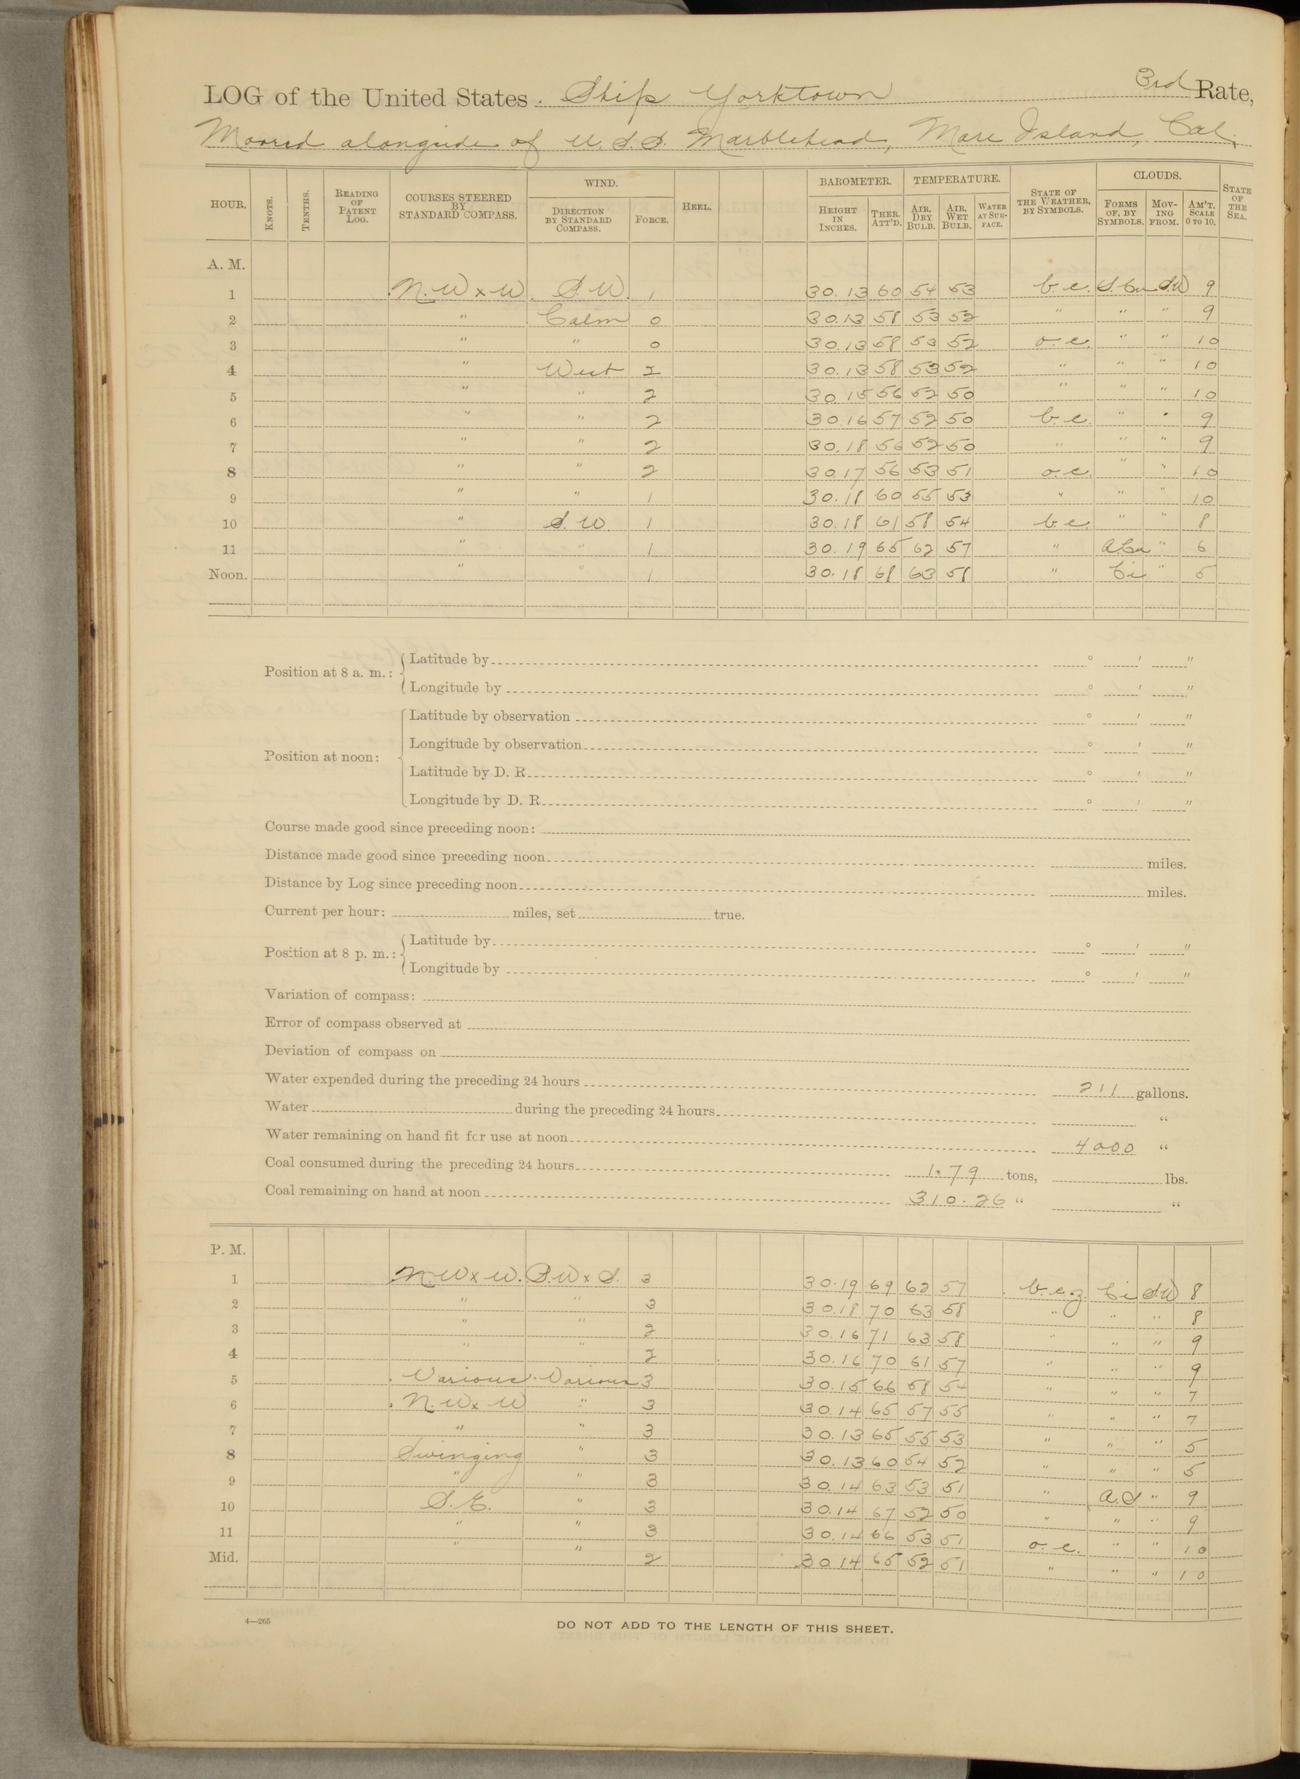 LOG of the United States Ship Yorktown 3rd Rate,
Moored alongside of U.S.S. Marblehead, Mare Island, Cal.
HOUR. KNOTS. TENTHS. READING OF PATENT LOG. COURSES STEERED BY STANDARD COMPASS. WIND. DIRECTION BY STANDARD COMPASS. FORCE. HEEL. BAROMETER. HEIGHT IN INCHES. THER. ATT'D. TEMPERATURE. AIR, DRY BULB. AIR, WET BULB. WATER AT SURFACE. STATE OF THE WEATHER, BY SYMBOLS. CLOUDS. FORMS OF, BY SYMBOLS. MOVING FROM. AM'T. SCALE 0 TO 10. STATE OF THE SEA.
A. M.
1 N.W x W. S.W. 1 30.13 60 54 53 b.c. S.Cu SW 9
2 " Calm 0 30.13 58 53 52 " " " 9
3 " " 0 30.13 58 53 52 o.c. " " 10
4 " West 2 30.13 58 53 52 " " " 10
5 " " 2 30.15 56 52 50 " " " 10
6 " " 2 30.16 57 52 50 b.c. " " 9
7 " " 2 30.18 56 52 50 " " " 9
8 " " 2 30.17 56 53 51 o.c. " " 10
9 " " 1 30.18 60 55 53 " " " 10
10 " S.W 1 30.18 61 58 54 b.c. " " 8
11 " " 1 30.19 65 62 57 " A.Cu " 6
Noon. " " 1 30.18 68 63 58 " Ci " 5
Position at 8 a. m.: Latitude by ° ' "
Longitude by ° ' "
Position at noon: Latitude by observation ° ' "
Longitude by observation ° ' "
Latitude by D. R. ° ' "
Longitude by D. R. ° ' "
Course made good since preceding noon:
Distance made good since preceding noon miles.
Distance by Log since preceding noon miles.
Current per hour: miles, set true.
Position at 8 p. m.: Latitude by ° ' "
Longitude by ° ' "
Variation of compass:
Error of compass observed at
Deviation of compass on
Water expended during the preceding 24 hours 211 gallons.
Water during the preceding 24 hours "
Water remaining on hand fit for use at noon 4000 "
Coal consumed during the preceding 24 hours 1.79 tons, lbs.
Coal remaining on hand at noon 310.26 " "
P. M.
1 N.W x W. S.W x S. 3 30.19 69 62 57 b.c.z. Ci SW 8
2 " " 3 30.18 70 63 58 " " " 8
3 " " 2 30.16 71 63 58 " " " 9
4 " " 2 30.16 70 61 57 " " " 9
5 Various Various 3 30.15 66 58 54 " " " 7
6 N.W x W " 3 30.14 65 57 55 " " " 7
7 " " 3 30.13 65 55 53 " " " 5
8 Swinging " 3 30.13 60 54 52 " " " 5
9 " " 3 30.14 63 53 51 " A.S " 9
10 S.E. " 3 30.14 67 52 50 " " " 9
11 " " 3 30.14 66 53 51 o.c. " " 10
Mid. " " 2 30.14 65 52 51 " " " 10
4—265
DO NOT ADD TO THE LENGTH OF THIS SHEET.